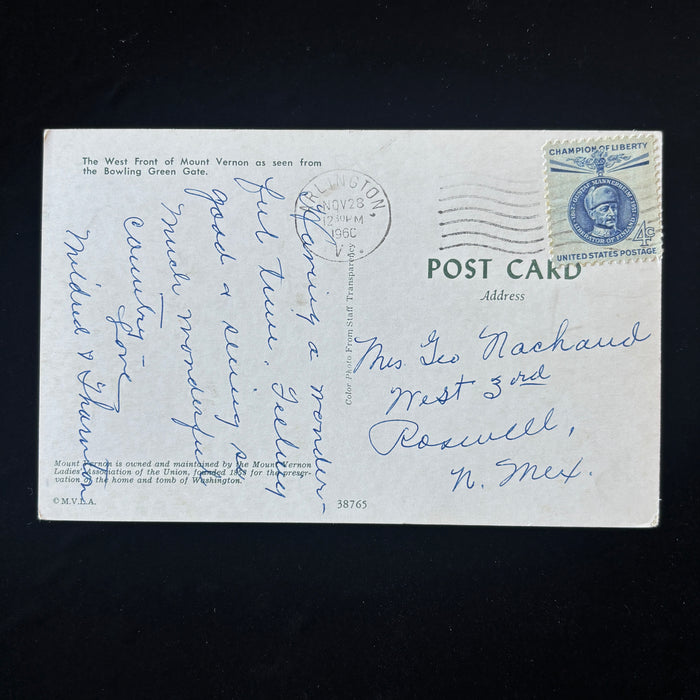 The West Front of Mount Vernon as seen from
the Bowling Green Gate.
Having a wonder-
ful time. Feeling
good & seeing so
much wonderful
country –
Love
Mildred & Thornton
Mount Vernon is owned and maintained by the Mount Vernon
Ladies' Association of the Union, founded 1858 for the preser-
vation of the home and tomb of Washington.
© M.V.L.A.
Color Photo From Staff Transparency
38765
ARLINGTON,
NOV 28
12 30 PM
1960
V
CHAMPION OF LIBERTY
GUSTAF MANNERHEIM
LIBERATOR OF FINLAND
4c
UNITED STATES POSTAGE
POST CARD
Address
Mrs. Geo
West 3rd
Roswell,
N. Mex.